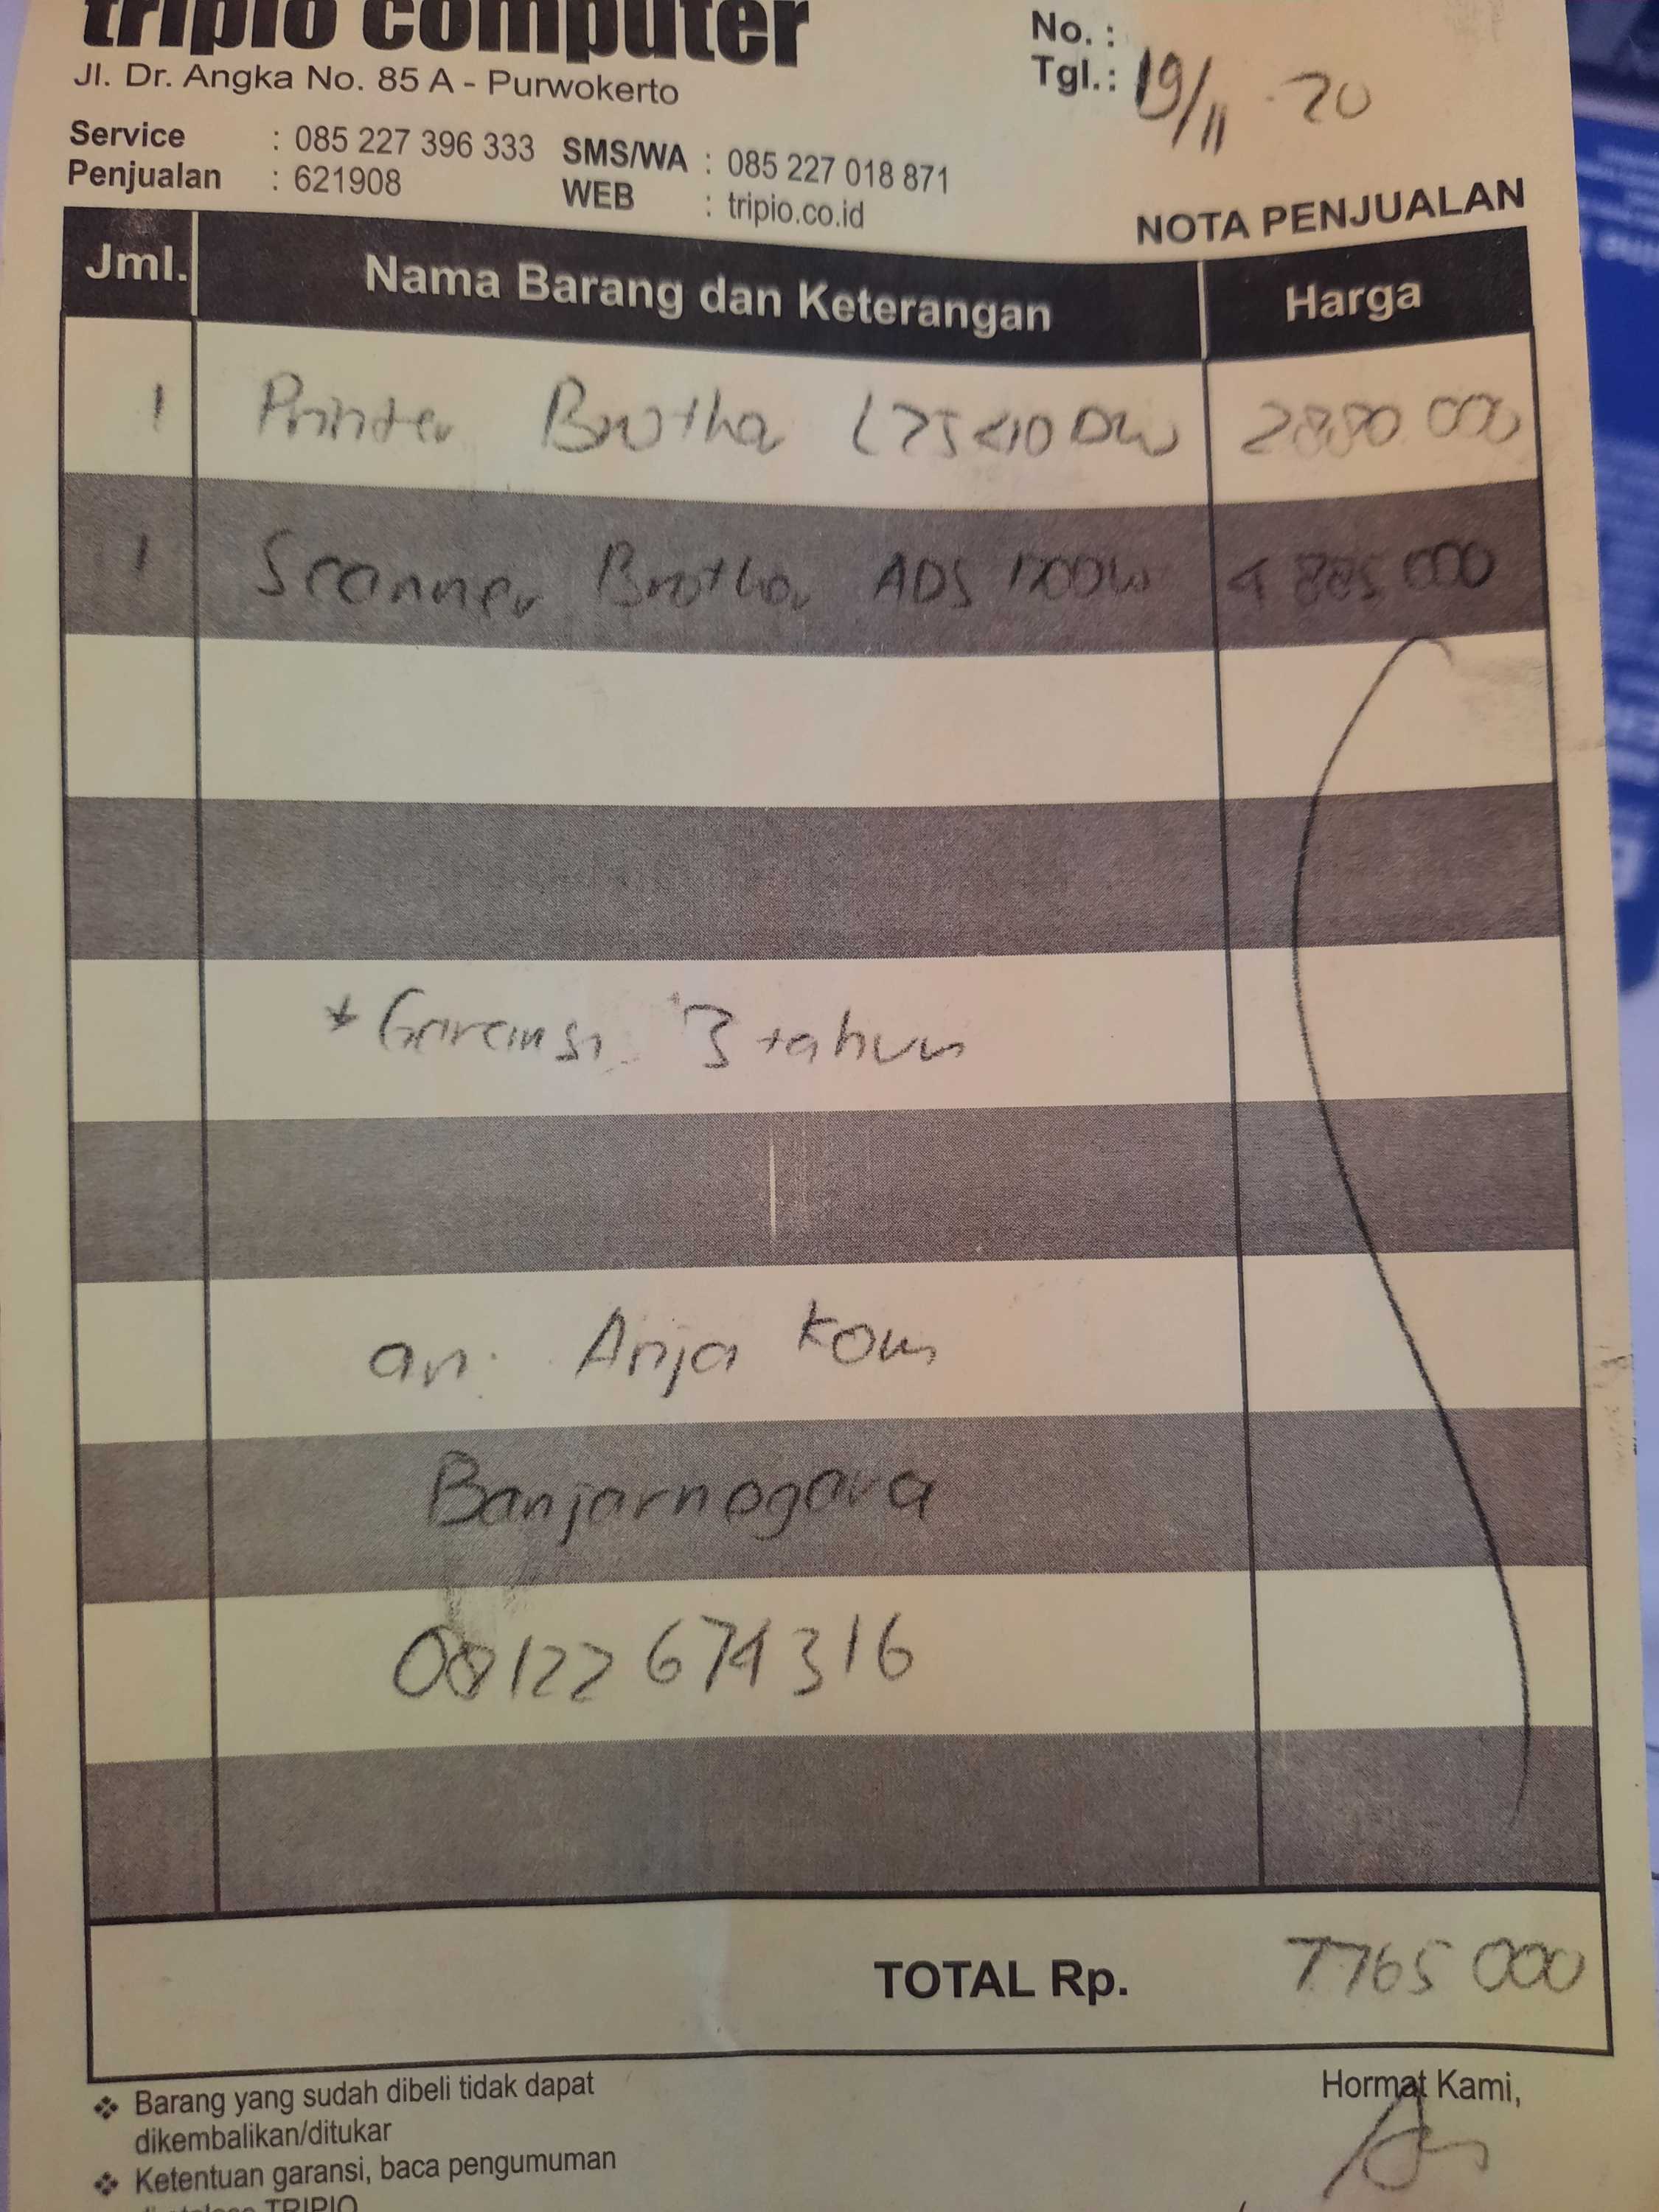 tripio computer
Jl. Dr. Angka No. 85 A - Purwokerto
No. :
Tgl. : 19/11 - 20
Service : 085 227 396 333 SMS/WA : 085 227 018 871
Penjualan : 621908 WEB : tripio.co.id
NOTA PENJUALAN
Jml. Nama Barang dan Keterangan Harga
1 Printer Brother L2540DW 2880.000
1 Scanner Brother ADS 1700DW 4885.000
* Garansi 3 tahun
an. Anja Kom
Banjarnegara
08122674316
TOTAL Rp. 7765 000
Barang yang sudah dibeli tidak dapat
dikembalikan/ditukar
Hormat Kami,
Ketentuan garansi, baca pengumuman
TRIPIO